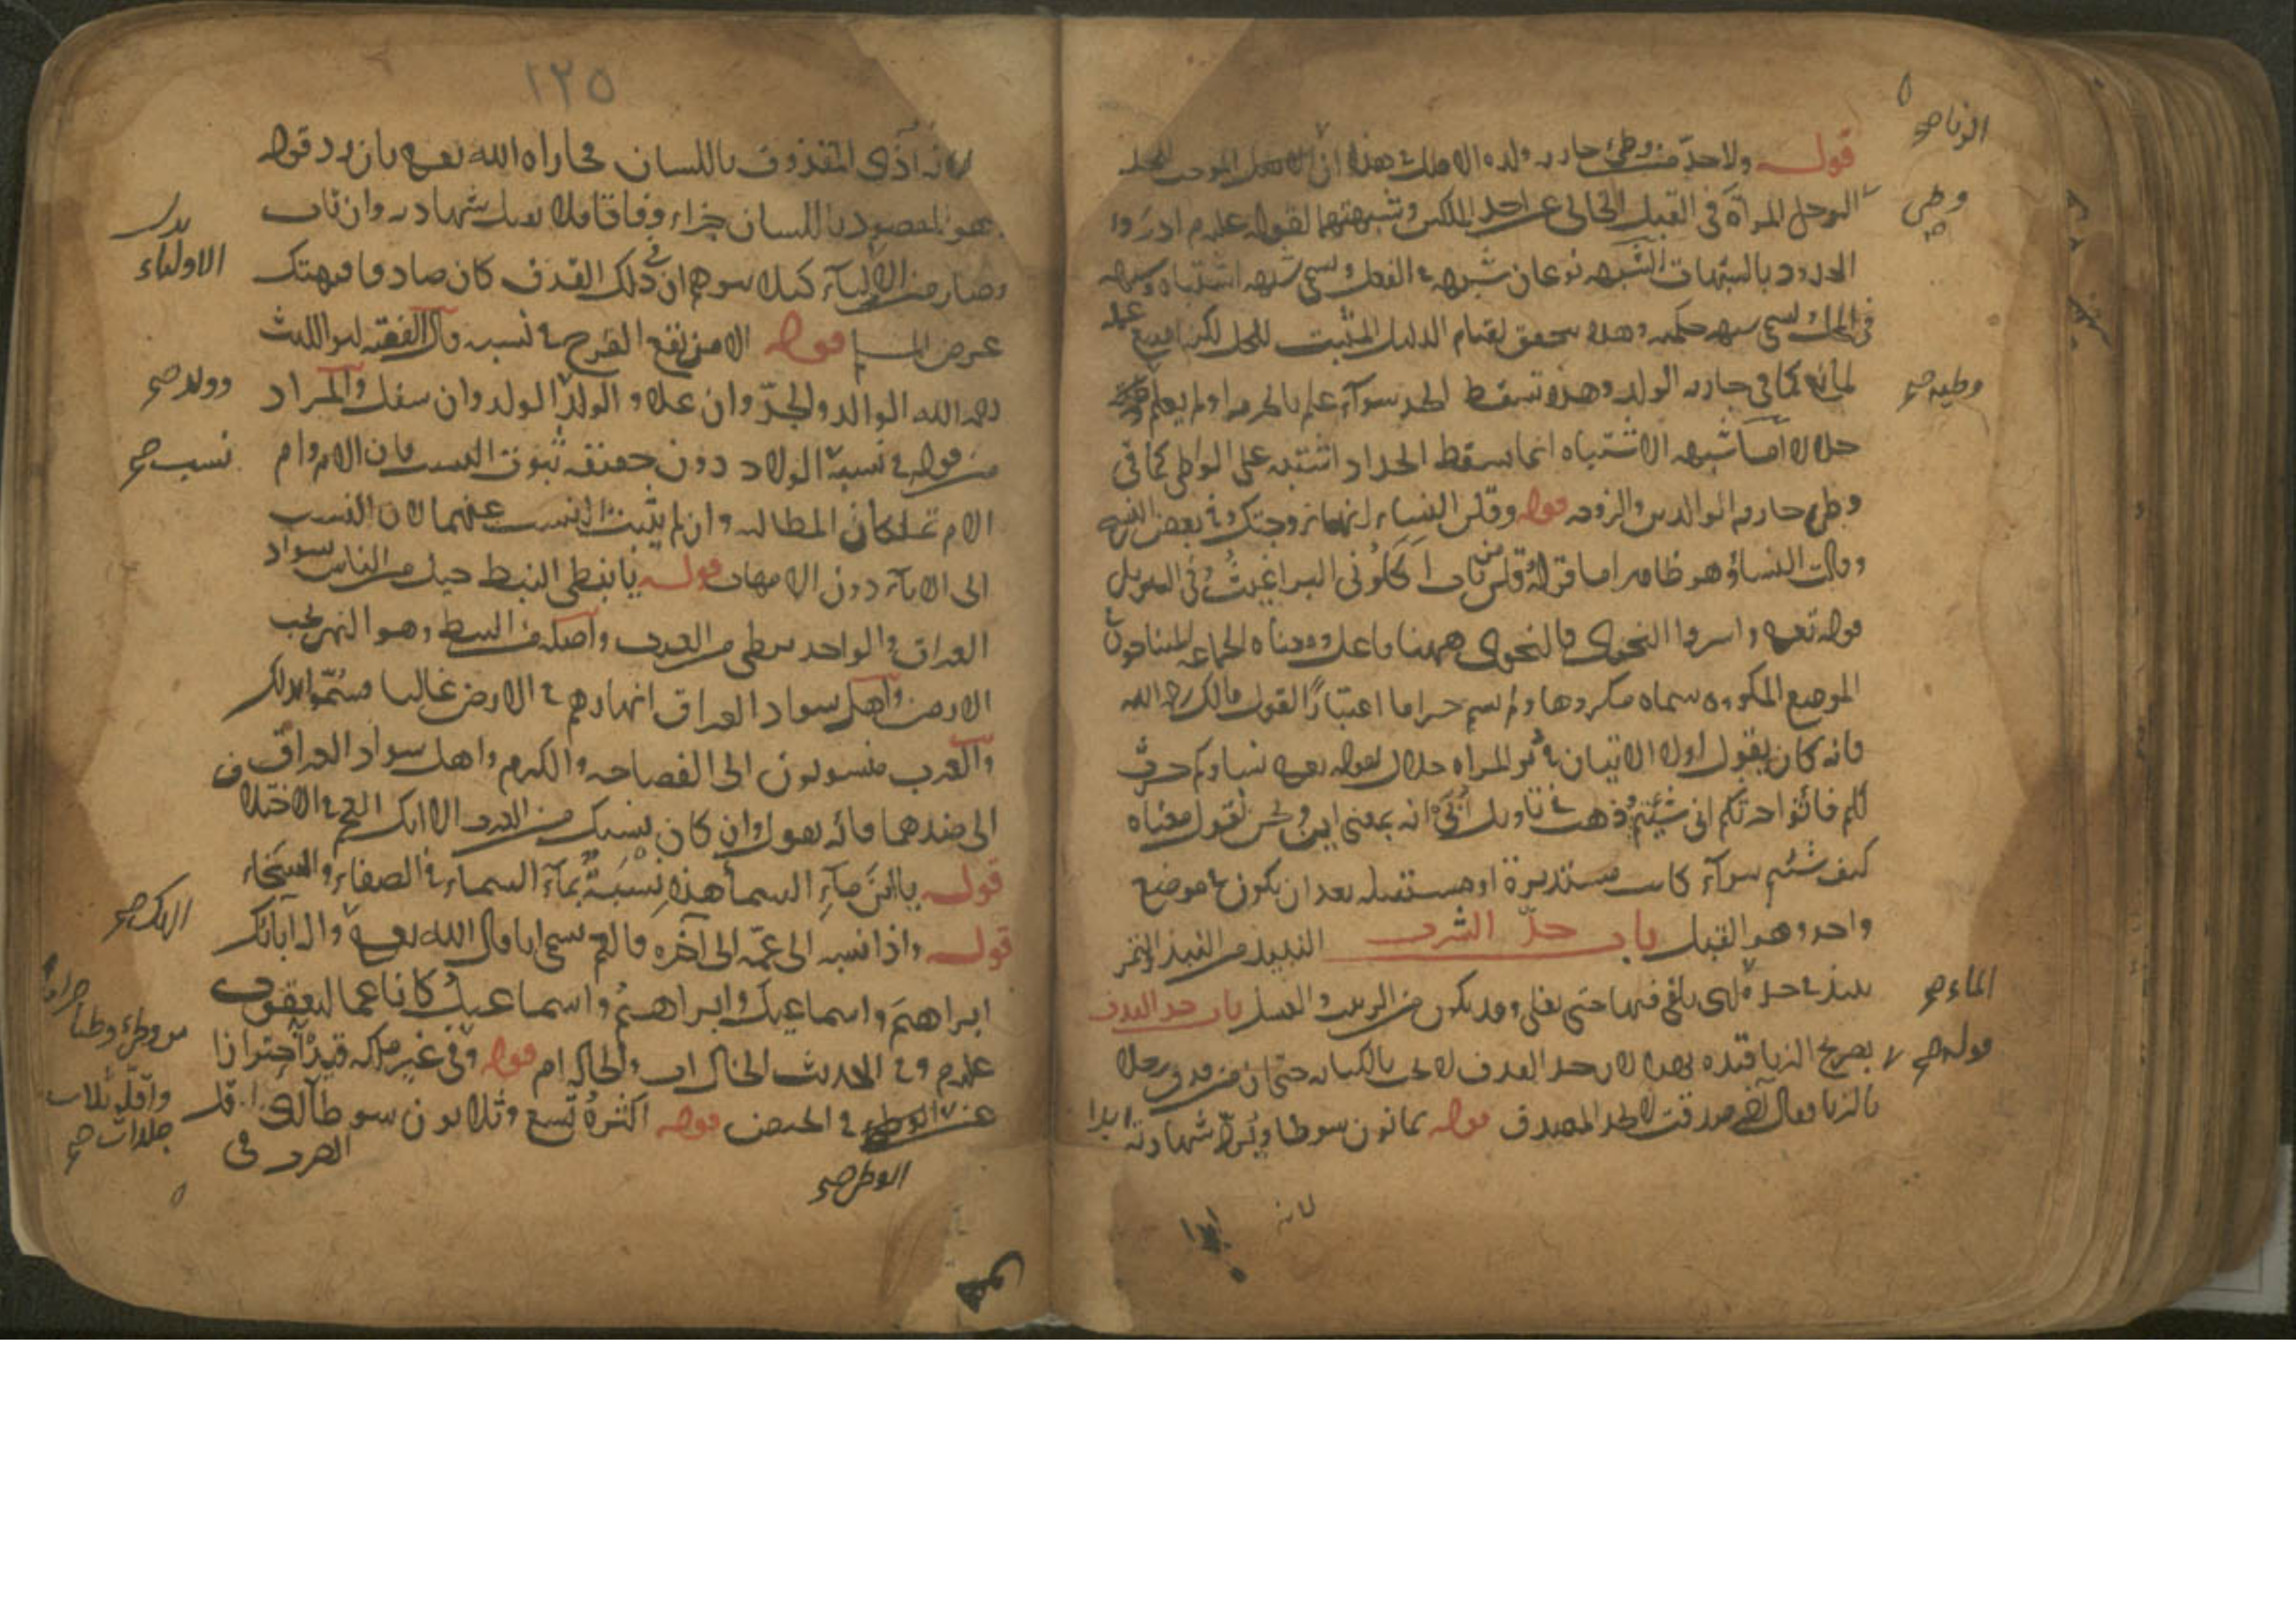 قوله ولا حد من وطئ جارية ولده الاصل في هذا ان الفعل الموجب للحد
الرجل المرأة في القبل الخالي عن احد الملكين وشبهتهما لقوله عليه م ادرؤا
الحدود بالشبهات الشبهه نوعان شبهه في الفعل وتسمى شبهه اشتباه وشبهه
في المحل وتسمى شبهه حكميه وهذه تتحقق لقيام الدليل المثبت للحل لكن امتنع عمله
لمانع كما في جارية الولد وهذه تسقط الحد سوآء علم بالحرمه او لم يعلم
حلالا اما شبهه الاشتباه انما يسقط الحد اذ اشتبه على الواطي كما في
وطئ جارية الوالدين والزوجه قوله وقلن النساء انها زوجتك وفي بعض النسخ
وقالت النساء وهو ظاهر اما قوله قلن من باب اكلوني البراغيث وفي التنزيل
قوله تعـ واسروا النجوى فالنجوى ههنا فاعل ومعناه الجماعه المتناجون في
الموضع المكروه سماه مكروها ولم يسم حراما اعتبارا لقول مالك رحمه الله
فانه كان يقول اولا الاتيان في دبر المراه حلال لقوله تعـ نساوكم حرث
لكم فأتوا حرثكم انى شئتم ذهب في تاويل انى انه بمعنى اين ونحن نقول معناه
كيف شئتم سوآء كانت مستدبرة او مستقبله بعد ان يكون في موضع
واحد وهو القبل باب حد الشرب النبيذ من النبذ التمر
ينبذ في جرة اي يلقى فيها حتى يغلي وقد يكون من الزبيب والعسل باب حد القذف
بصريح الزنا قيده بهذا لان حد القذف لا يجب بالكنايه حتى ان من قذف رجلا
بالزنا فقال آخر صدقت لا يحد المصدق قوله ثمانون سوطا ويرد شهادته ابدا
الزنا صح
وطئ صح
وطيه صح
الماء صح
قوله صح
لانه
ابدا
١٢٥
لانه آذى المقذوف باللسان فجازاه الله تعـ بان رد قوله
هو المقصود باللسان جزاء وفاقا فلا تقبل شهادته وان تاب
وصار من الاولياء كيلا يتوهم ان في ذلك القذف كان صادقا فيهتك
عرض المسلم قوله الا من يقع القدح في نسبه قال الفقيه ابو الليث
رحمه الله الوالد والجد وان علا والولد الولد وان سفل والمراد
من قوله في نسبه الولاد دون حقيقه ثبوت النسب فان الام وام
الام تملكان المطالبه وان لم يثبت النسب عنهما لان النسب
الى الاباء دون الامهات قوله يا نبطي النبط جيل من الناس سواد
العراق والواحد نبطي من العرب واصله من النبط وهو النهر تحت
الارض واهل سواد العراق انهارهم في الارض غالبا فسموا بذلك
والعرب منسوبون الى الفصاحه والكرم واهل سواد العراق
الى ضدهما فانه يقول وان كان نسبك من العرب الا انك في الاختلاف
قوله يا ابن مآء السماء هذه نسبة بمآء السماء في الصفاء والسخاء
قوله واذا نسبه الى عمه الى آخره فالعم يسمى ابا قال الله تعـ واله آبائك
ابراهيم واسماعيل وابراهيم واسماعيل كانا عما ليعقوب
عليه م وفي الحديث الخال اب والخاله ام قوله وفي غير ملكه قيد احترازا
عن الوطئ في الحيض قوله اكثره تسع وثلاثون سوطا لان اقل
الضرب في
الاولياء
وولد صح
نسب صح
انك صح
من وطئ وطئا حراما
واقله ثلاث جلدات صح
الوطئ صح